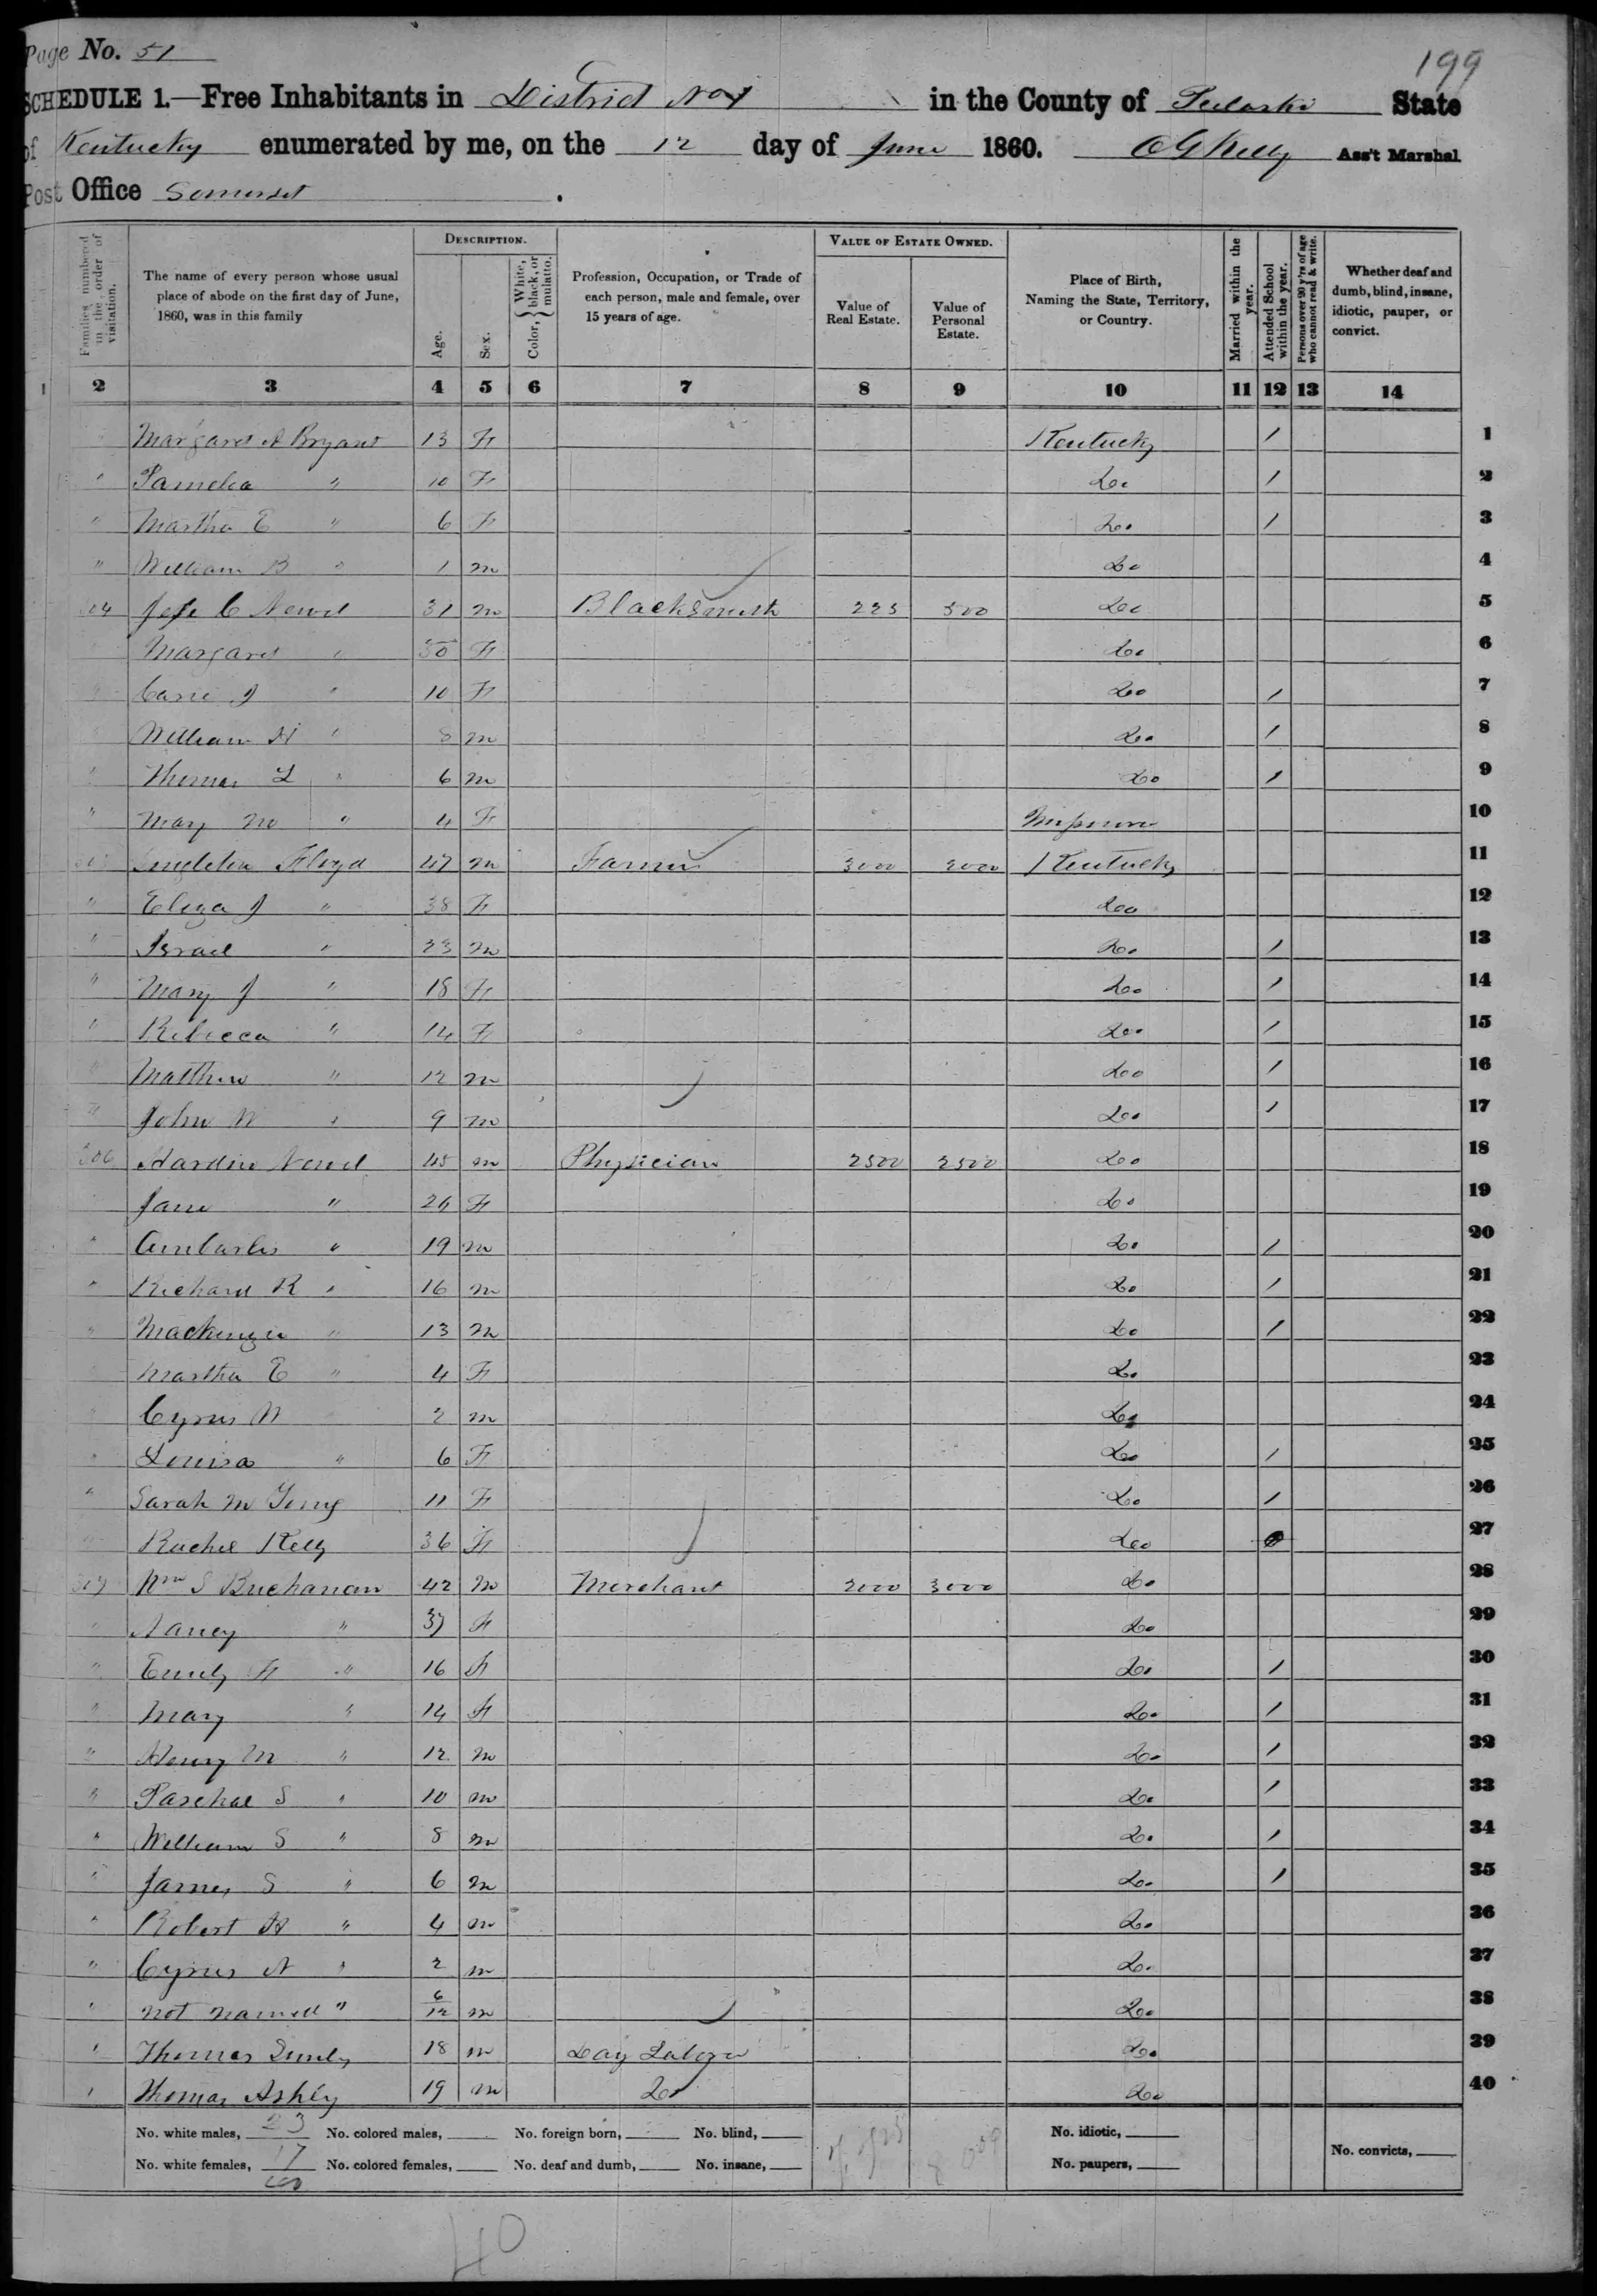 Page No. 51
199
SCHEDULE 1.—Free Inhabitants in District No 1 in the County of Pulaski State
of Kentucky enumerated by me, on the 12 day of June 1860. Ass't Marshal
Post Office Somerset
Families numbered in the order of visitation.
The name of every person whose usual place of abode on the first day of June, 1860, was in this family
DESCRIPTION.
Age.
Sex.
Color, { White, black, or mulatto.
Profession, Occupation, or Trade of each person, male and female, over 15 years of age.
VALUE OF ESTATE OWNED.
Value of Real Estate.
Value of Personal Estate.
Place of Birth, Naming the State, Territory, or Country.
Married within the year.
Attended School within the year.
Persons over 20 y'rs of age who cannot read & write.
Whether deaf and dumb, blind, insane, idiotic, pauper, or convict.
1 2 3 4 5 6 7 8 9 10 11 12 13 14
Margaret A Bryant 13 F Kentucky / 1
" Pamelia " 10 F Do / 2
" Martha E " 6 F Do / 3
" William B " 1 m Do 4
C Newel 31 m Blacksmith 225 500 Do 5
Margaret " 30 F Do 6
J " 10 F Do / 7
William H " 8 m Do / 8
" Thomas L " 6 m Do / 9
" Mary M " 4 F Missouri 10
Singleton Floyd 47 m Farmer 3000 2000 Kentucky 11
" Eliza J " 38 F Do 12
" Israel " 23 m Do / 13
" Mary J " 18 F Do / 14
" Rebecca " 14 F Do / 15
" Matthew " 12 m Do / 16
" John W " 9 m Do / 17
306 Hardin Newel 45 m Physician 2500 2500 Do 18
Jane " 26 F Do 19
" " 19 m Do / 20
" Richard R " 16 m Do / 21
" Mackenzie " 13 m Do / 22
Martha E " 4 F Do 23
Cyrus W 2 m Do 24
" Louisa " 6 F Do / 25
" Sarah M 11 F Do / 26
" Rachel Kelly 36 F Do 27
307 Wm S Buchanan 42 m Merchant 2000 3000 Do 28
" Nancy " 37 F Do 29
" Emily F " 16 F Do / 30
" Mary " 14 F Do / 31
" Henry M " 12 m Do / 32
" Paschal S " 10 m Do / 33
" William S " 8 m Do / 34
" James S " 6 m Do / 35
" Robert H " 4 m Do 36
" Cyrus A " 2 m Do 37
" not named " 6/12 m Do 38
" Thomas 18 m Day Laborer Do 39
" Thomas Ashley 19 m Do Do 40
No. white males, 23 No. colored males, No. foreign born, No. blind, No. idiotic,
No. white females, 17 No. colored females, No. deaf and dumb, No. insane, No. paupers, No. convicts,
40
40